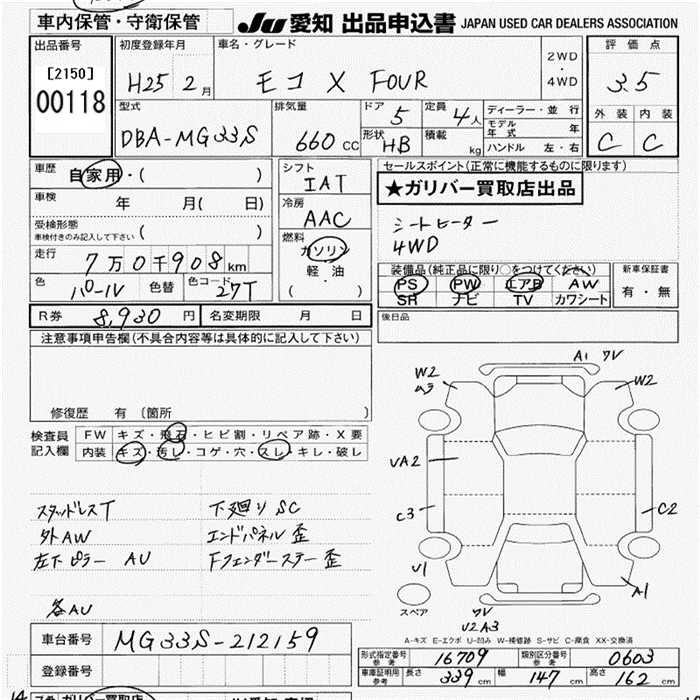 車内保管・守衛保管
JU 愛知 出品申込書 JAPAN USED CAR DEALERS ASSOCIATION
出品番号
[2150]
00118
初度登録年月
H25 2月
車名・グレード
モコ X FOUR
2WD
・
4WD
評価点
3.5
外装 内装
C C
型式
DBA-MG33S
排気量
660 CC
ドア 5
定員 4人
形状 HB
積載 kg
ディーラー・並行
モデル年式 年
ハンドル 左・右
車歴 自家用・( )
車検 年 月( 日)
受検形態
車検付きのみ記入して下さい ( )
走行 7万0千908km
色 パール 色替 色コード 27T
シフト
IAT
冷房
AAC
燃料
ガソリン
軽・油
( )
セールスポイント(正常に機能するものに限ります)
★ガリバー買取店出品
シートヒーター
4WD
装備品(純正品に限り○をつけてください)
PS PW エアB AW
SR ナビ TV カワシート
新車保証書
有・無
R券 8,930 円 名変期限 月 日
後日品
注意事項申告欄(不具合内容等は具体的に記入して下さい)
修復歴 有 〔箇所 〕
検査員記入欄
FW キズ・飛石・ヒビ割・リペア跡・X要
内装 キズ・汚し・コゲ・穴・スレ・キレ・破レ
スタッドレスT
外AW
左下ピラー AU
各AU
下廻りSC
エンドパネル歪
Fフェンダーステー歪
A1
W2
W2
UA2
C3
C2
U1
A1
U2A3
スペア
A-キズ E-エクボ U-凹み W-補修跡 S-サビ C-腐食 XX-交換済
車台番号 MG33S-212159
登録番号
形式指定番号 参考 16709 類別区分番号 参考 0603
車庫証明用 参考 長さ 339 cm 幅 147 cm 高さ 162 cm
ガリバー買取店